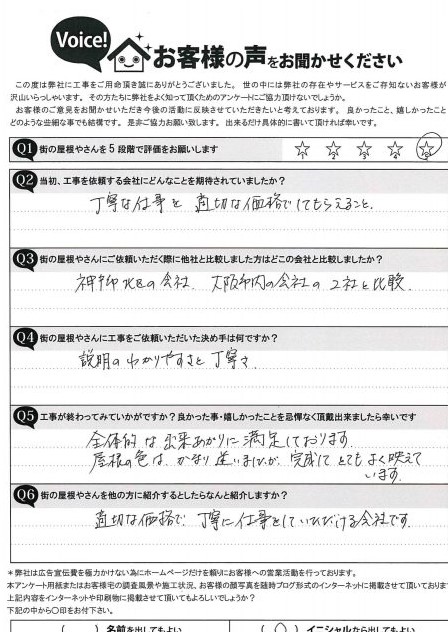 Voice!
お客様の声をお聞かせください
この度は弊社に工事をご用命頂き誠にありがとうございました。世の中には弊社の存在やサービスをご存知ないお客様が
沢山いらっしゃいます。その方たちに弊社をよく知って頂くためのアンケートにご協力頂けないでしょうか。
お客様のご意見をお聞かせいただき今後の活動に反映させていただきたいと考えております。良かったこと、嬉しかったこと
どのような些細な事でも結構です。是非ご協力お願い致します。出来るだけ具体的に書いて頂ければ幸いです。
Q1 街の屋根やさんを5段階で評価をお願いします
☆1 ☆2 ☆3 ☆4 ☆5
Q2 当初、工事を依頼する会社にどんなことを期待されていましたか?
丁寧な仕事を 適切な価格でしてもらえること。
Q3 街の屋根やさんにご依頼いただく際に他社と比較しました方はどこの会社と比較しましたか?
神戸市北区の会社、大阪市内の会社の2社と比較.
Q4 街の屋根やさんに工事をご依頼いただいた決め手は何ですか?
説明のわかりやすさと丁寧さ
Q5 工事が終わってみていかがですか?良かった事・嬉しかったことを忌憚なく頂戴出来ましたら幸いです
全体的な出来あがりに満足しております.
屋根の色は、かなり迷いましたが、完成してとてもよく映えて
います.
Q6 街の屋根やさんを他の方に紹介するとしたらなんと紹介しますか?
適切な価格で、丁寧に仕事をしていただける会社です.
*弊社は広告宣伝費を極力かけない為にホームページだけを頼りにお客様への営業活動を行っております。
本アンケート用紙またはお客様宅の調査風景や施工状況、お客様の顔写真を随時ブログ形式のインターネットに掲載させて頂いておりま
上記内容をインターネットや印刷物に掲載させて頂いてもよろしいでしょうか?
下記の中から〇印をお付下さい。
( ) 名前を出してもよい ( 〇 ) イニシャルなら出してもよい